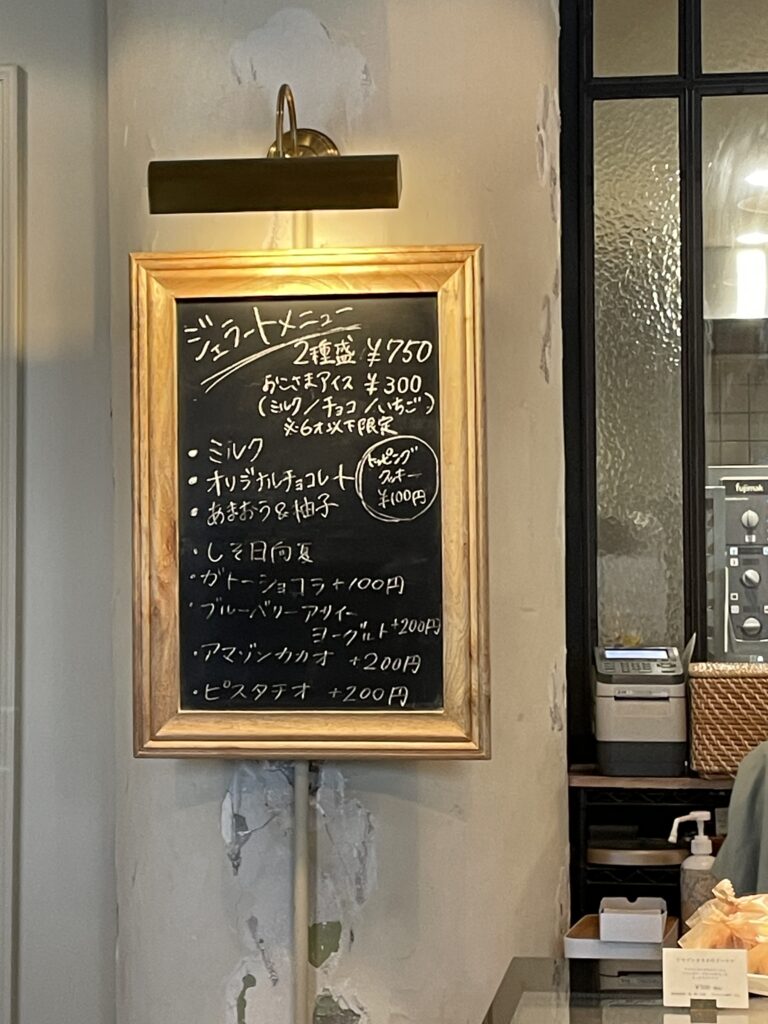 ジェラートメニュー
2種盛 ¥750
おこさまアイス ¥300
(ミルク/チョコ/いちご)
※6才以下限定
・ミルク
・オリジナルチョコレート
・あまおう&柚子
トッピング
クッキー
¥100円
・しそ日向夏
・ガトーショコラ+100円
・ブルーベリーアサイー
ヨーグルト+200円
・アマゾンカカオ +200円
・ピスタチオ +200円
fujimak